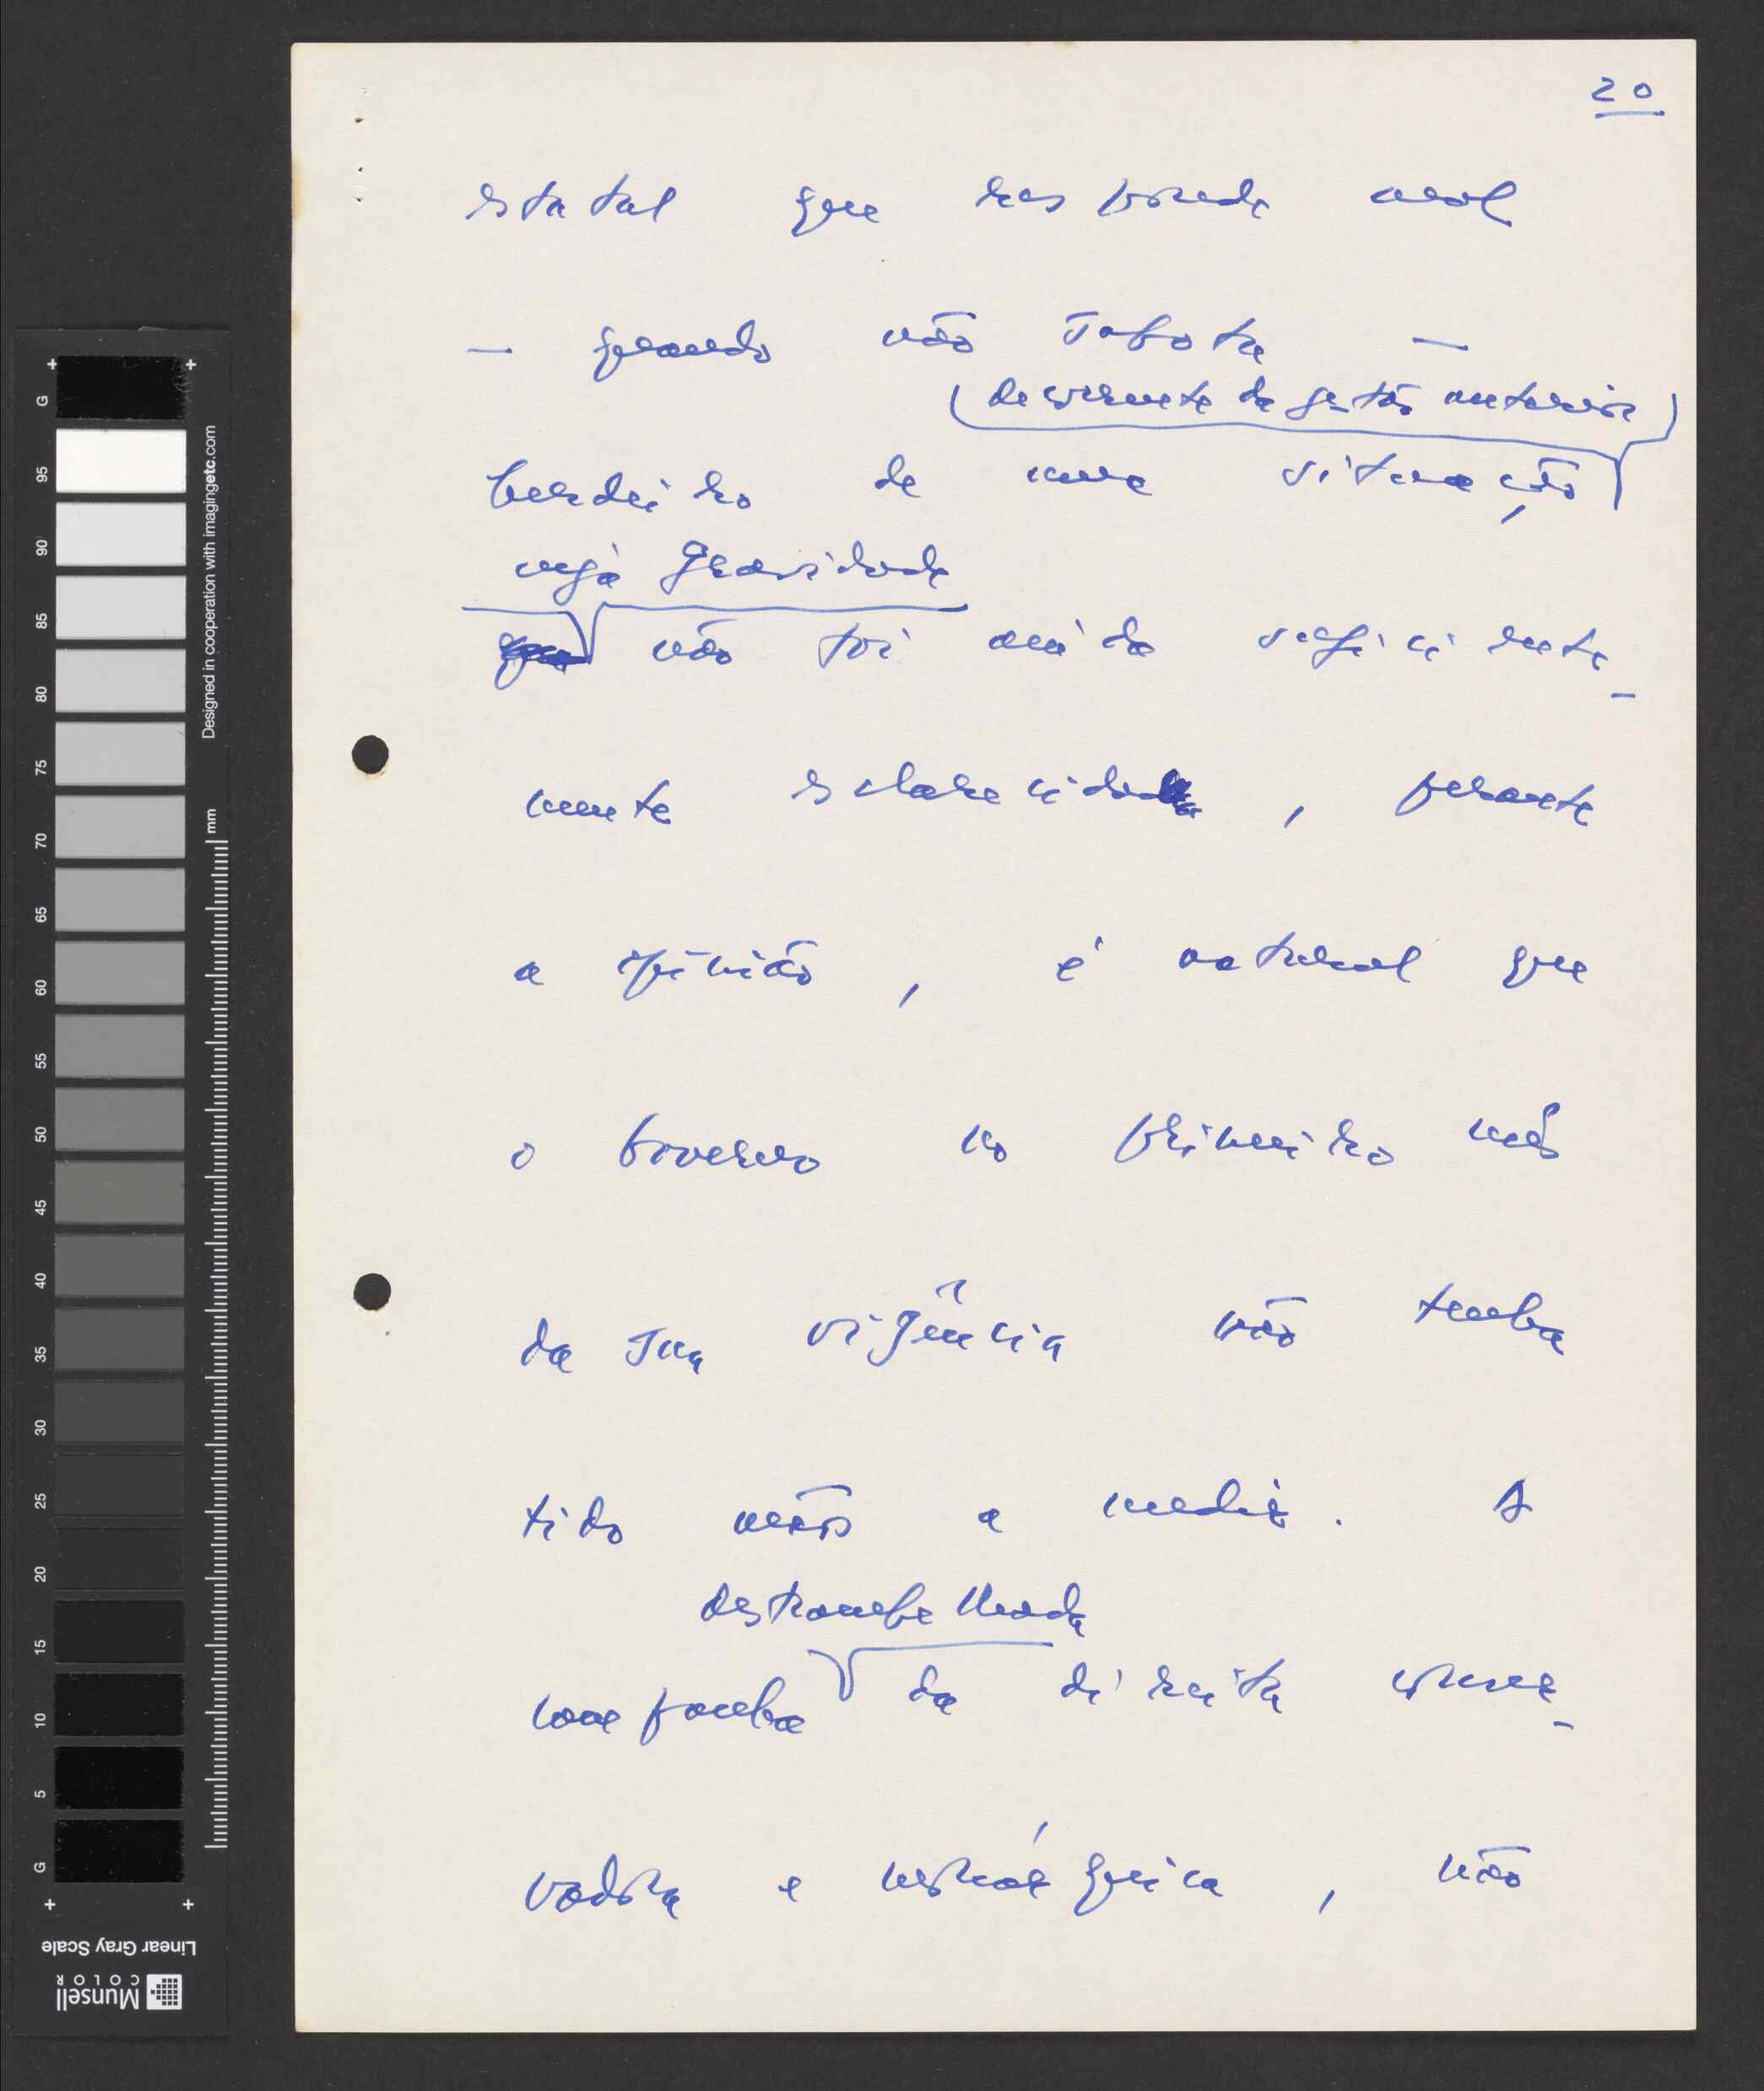 20
estatal que responde mal
— quando não sabota —
(decorrente da gestão anterior)
herdeiro de uma situação
cuja gravidade
não foi ainda suficiente-
mente esclarecida, perante
a opinião, é natural que
o Governo no primeiro mês
da sua vigência não tenha
tido mãos a medir. A
destrambelhada
campanha da direita conser-
vadora e nostálgica, não
G
95
90
85
80
75
70
65
60
55
50
45
40
35
30
25
20
15
10
5
G
mm
Designed in cooperation with imagingetc.com
Linear Gray Scale
Munsell
COLOR